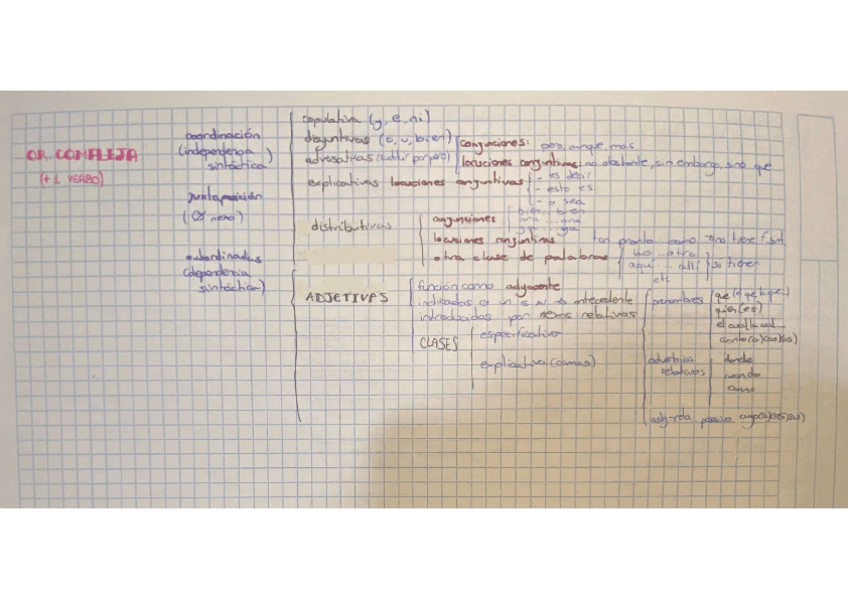 OR. COMPLEJA
(+ 1 VERBO)
coordinación
(independencia
sintáctica)
copulativa (y, e, ni)
disyuntivas (o, u, bien)
adversativas (sustituir por pero)
conjunciones: pero, aunque, mas
locuciones conjuntivas: no obstante, sin embargo, sino que
explicativas locuciones conjuntivas
- es decir
- esto es
- o sea
distributivas
conjunciones
bien... bien
ora... ora
ya... ya
locuciones conjuntivas tan pronto como no tiene f. sint
otra clase de palabras
uno... otro
aquí... allí
si tienen
etc
yuxtaposición
(Ø nexo)
subordinadas
(dependencia
sintáctica)
ADJETIVAS
función como adyacente
antecedente
introducidas por nexos relativos
pronombres
que
quien (es)
el cual la cual...
cuanto (a)(os)(as)
adverbios
relativos
donde
cuando
como
CLASES
especificativa
explicativa (comas)